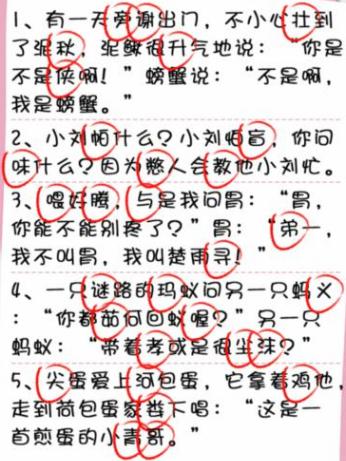 1、有一天旁谢出门，不小心壮到
了泥秋，泥鳅很升气地说：“你是
不是侠啊！”螃蟹说：“不是啊，
我是螃蟹。”
2、小刘帕什么？小刘怕盲，你问
味什么？因为憨人会教他小刘忙。
3、喂好腾，与是我问胃：“胃，
你能不能别疼了？”胃：“弟一，
我不叫胃，我叫楚雨寻！”
4、一只谜路的玛蚁问另一只蚂义
：“你都茄何回蚁喔？”另一只
蚂蚁：“带着孝或是很尘沫？”
5、尖蛋爱上河包蛋，它拿着鸡他，
走到荷包蛋家下唱：“这是一
首煎蛋的小青哥。”